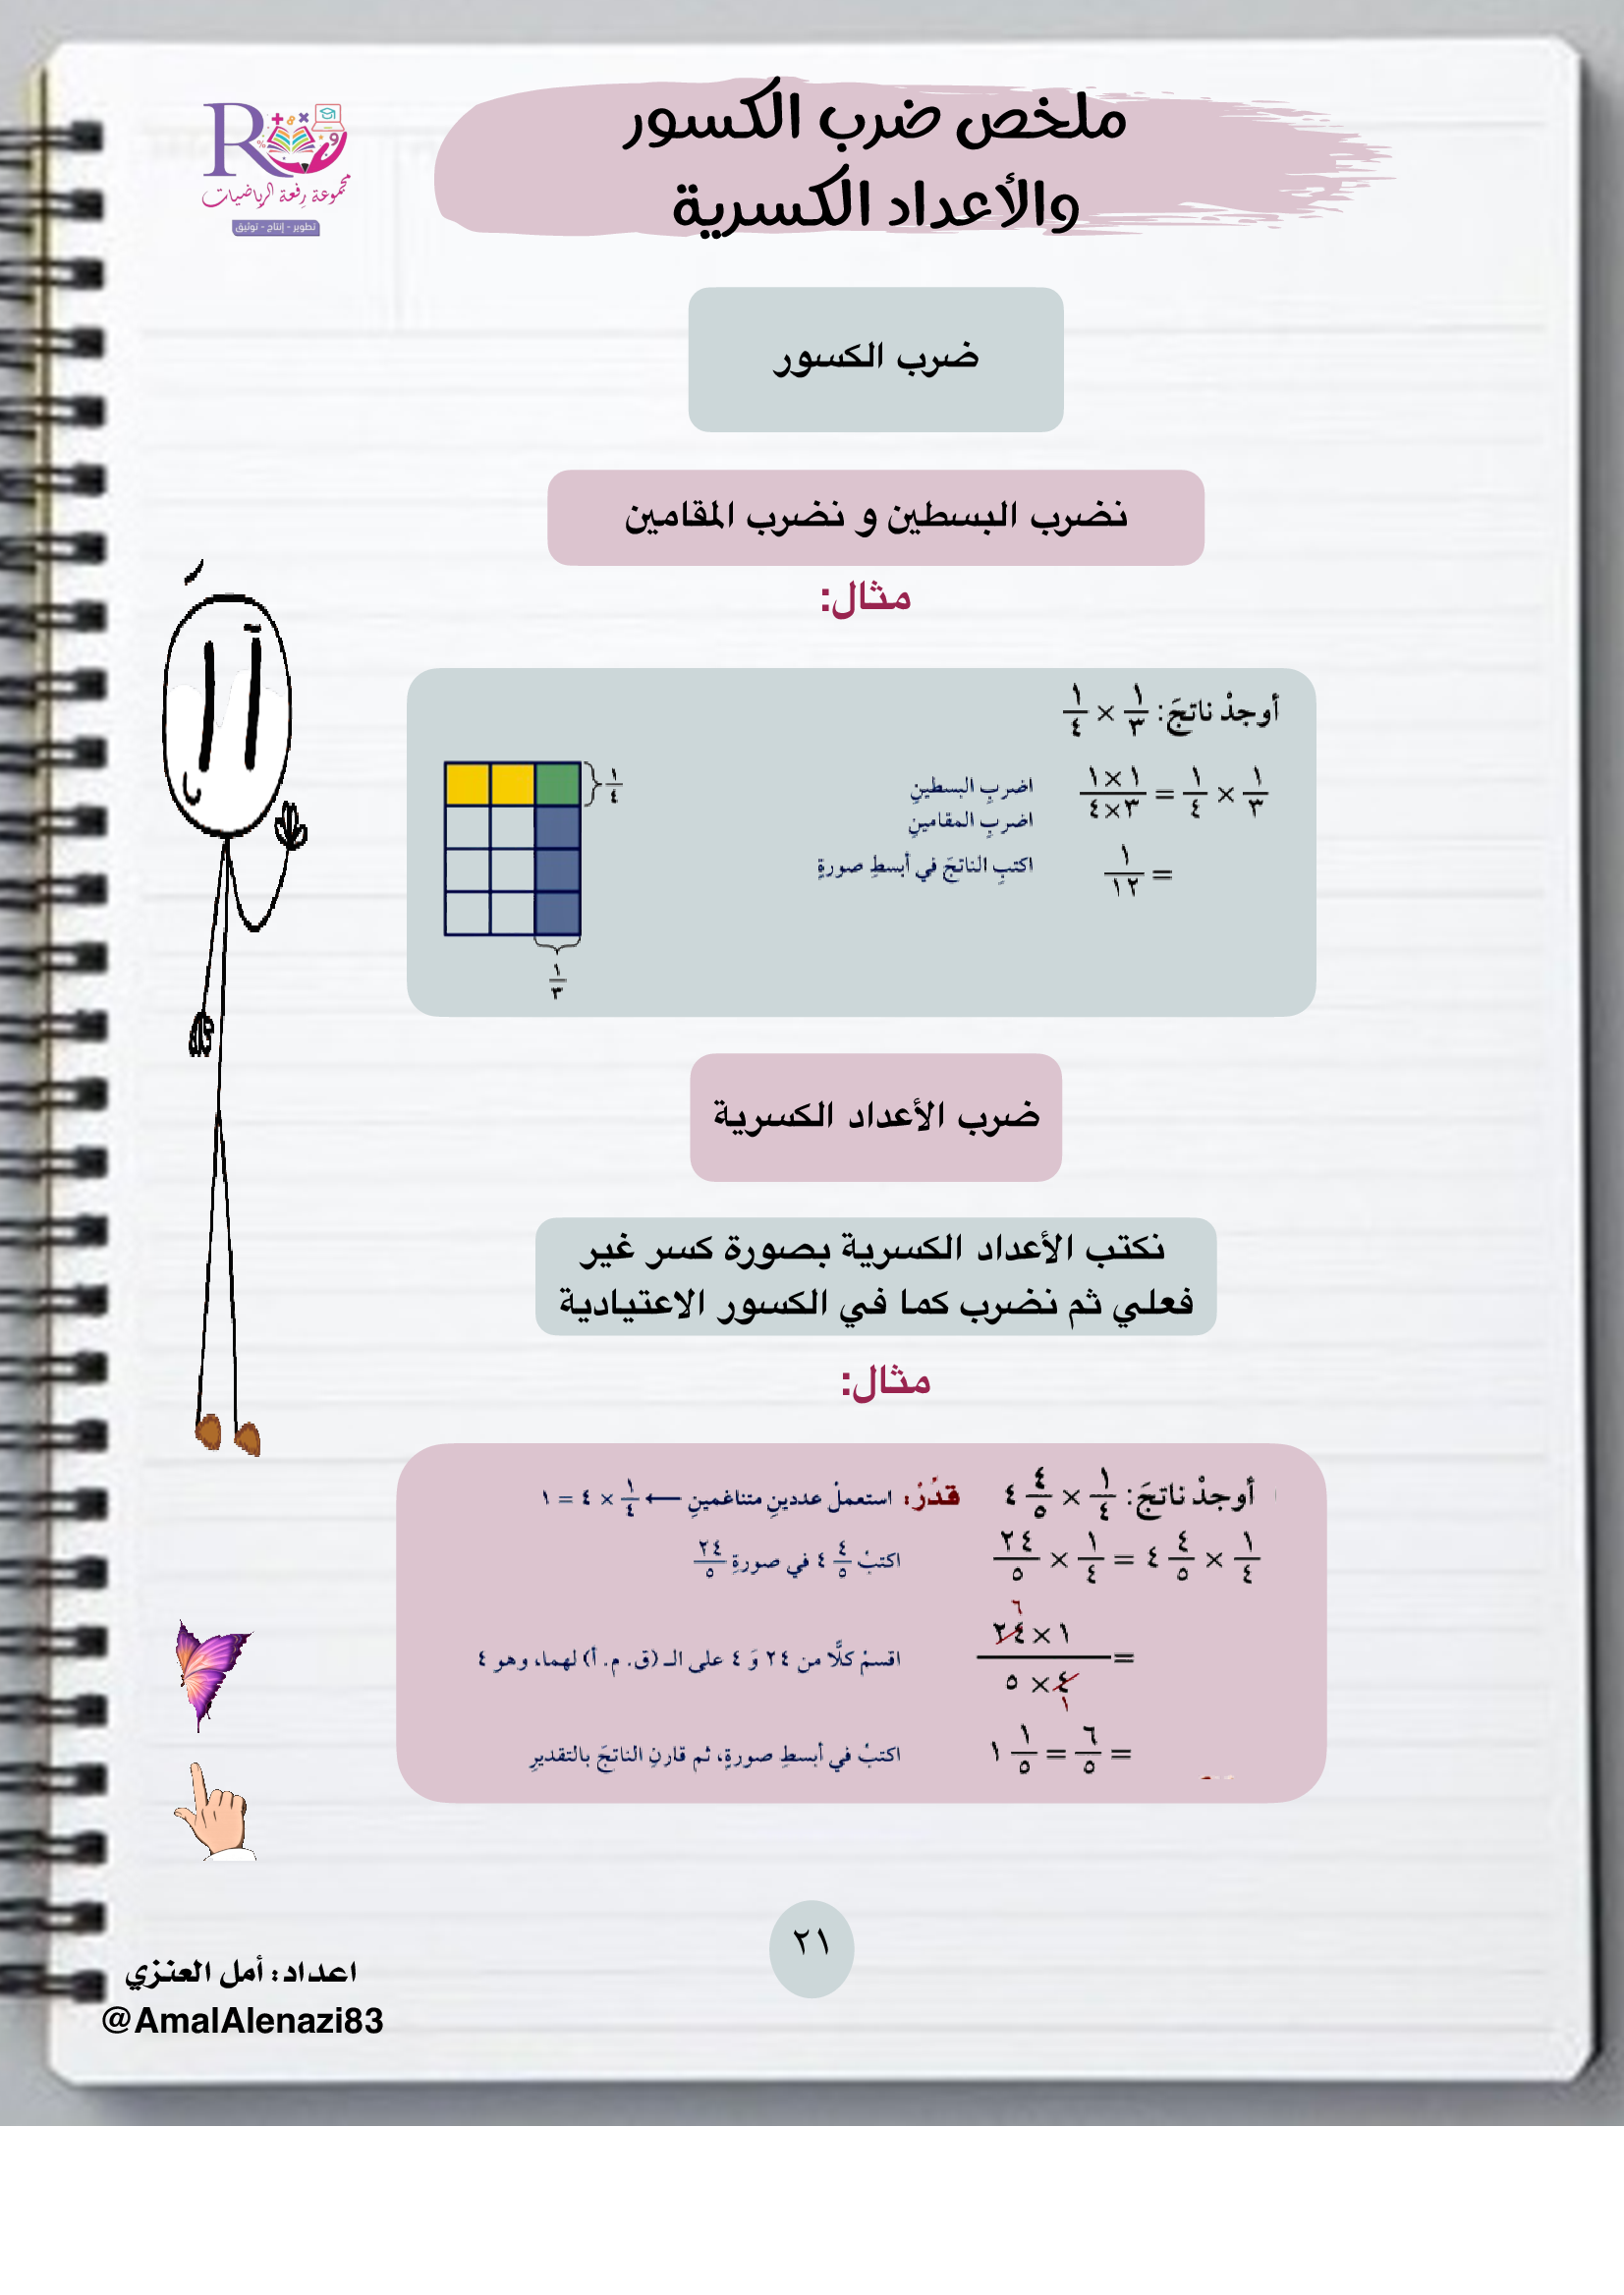 ملخص ضرب الكسور
والأعداد الكسرية
R
مجموعة رفعة الرياضيات
تطوير - إنتاج - توثيق
ضرب الكسور
نضرب البسطين و نضرب المقامين
مثال:
أوجدْ ناتجَ: ١/٣ × ١/٤
١/٣ × ١/٤ = (١ × ١)/(٣ × ٤) اضربِ البسطينِ
اضربِ المقامينِ
= ١/١٢ اكتبِ الناتجَ في أبسطِ صورةٍ
١/٤
١/٣
ضرب الأعداد الكسرية
نكتب الأعداد الكسرية بصورة كسر غير
فعلي ثم نضرب كما في الكسور الاعتيادية
مثال:
أوجدْ ناتجَ: ١/٤ × ٤ ٤/٥ قدِّرْ: استعملْ عددينِ متناغمينِ ⟵ ١/٤ × ٤ = ١
١/٤ × ٤ ٤/٥ = ١/٤ × ٢٤/٥ اكتبْ ٤ ٤/٥ في صورةِ ٢٤/٥
٦
= (١ × ٢٤)/(٤ × ٥) اقسمْ كلًّا من ٢٤ وَ ٤ على الـ (ق. م. أ) لهما، وهو ٤
١
= ٦/٥ = ١ ١/٥ اكتبْ في أبسطِ صورةٍ، ثم قارنِ الناتجَ بالتقديرِ
٢١
اعداد: أمل العنزي
@AmalAlenazi83